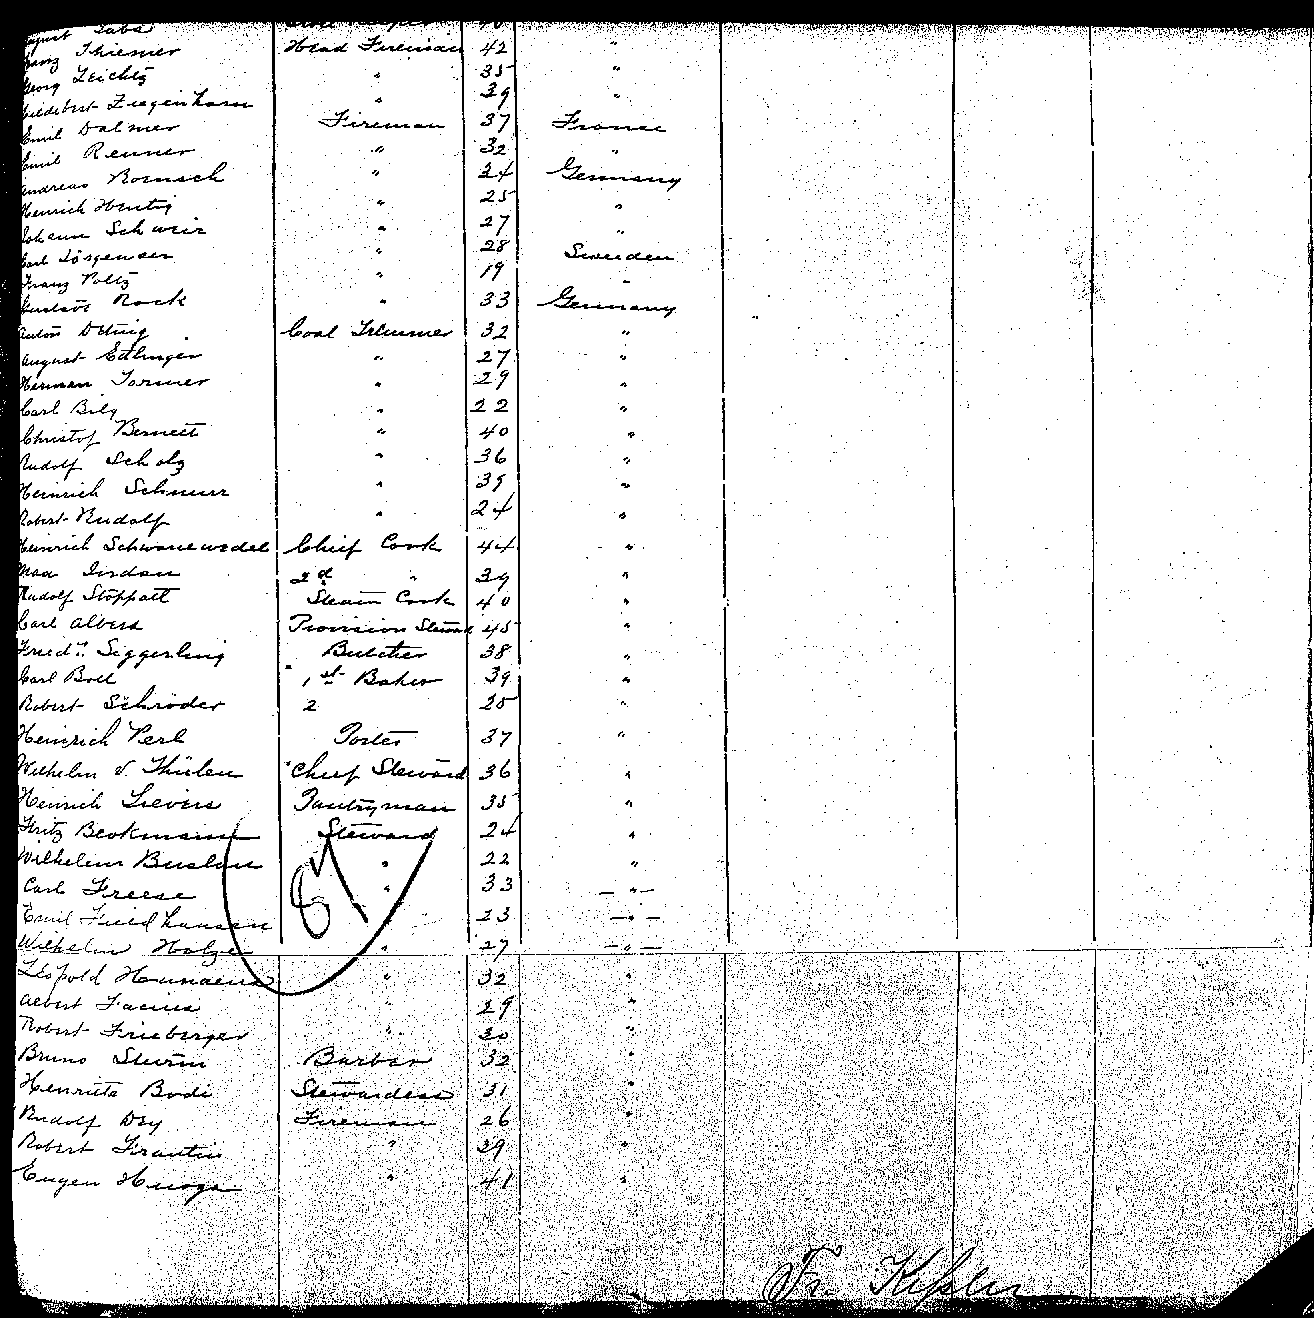 August Labs
Franz Thiemer Head Fireman 42 "
Georg Leichtz " 35 "
Hildebert Ziegenhorn " 39 "
Emil Dalmer Fireman 37 France
Emil Renner " 32 "
Andreas Roensch " 24 Germany
Heinrich Hentig " 25 "
Johann Schweir " 27 "
Carl Jörgensen " 28 Sweden
Franz Poltz " 19 "
Gustav Rock " 33 Germany
Anton Detting Coal Trimmer 32 "
August Edlinger " 27 "
Herman Tormer " 29 "
Carl Bily " 22 "
Christof Bernett " 40 "
Rudolf Scholz " 36 "
Heinrich Schnurr " 39 "
Robert Rudolf " 24 "
Heinrich Schwanewedel Chief Cook 44 "
Max Jordan 2d " 39 "
Rudolf Stoppatt Steam Cook 40 "
Carl Albers Provision Steward 45 "
Fried. Siggerling Butcher 38 "
Carl Boll 1st Baker 39 "
Robert Schröder 2 25 "
Heinrich Perl Porter 37 "
Wilhelm v. Thülen Chief Steward 36 "
Heinrich Sievers Pantryman 35 "
Fritz Beckmann Steward 24 "
Wilhelm Buslau " 22 "
Carl Freese " 33 "
Emil Fieldhausen 23 "
Wilhelm Holze " 27 "
87
Leopold " 32 "
Albert Facius " 29 "
Robert Frieberger " 30 "
Bruno Sturm Barber 32 "
Henrietta Bodi Stewardess 31 "
Rudolf Dey Fireman 26 "
Robert Frantin " 29 "
Eugen " 41 "
Fr. Kißler